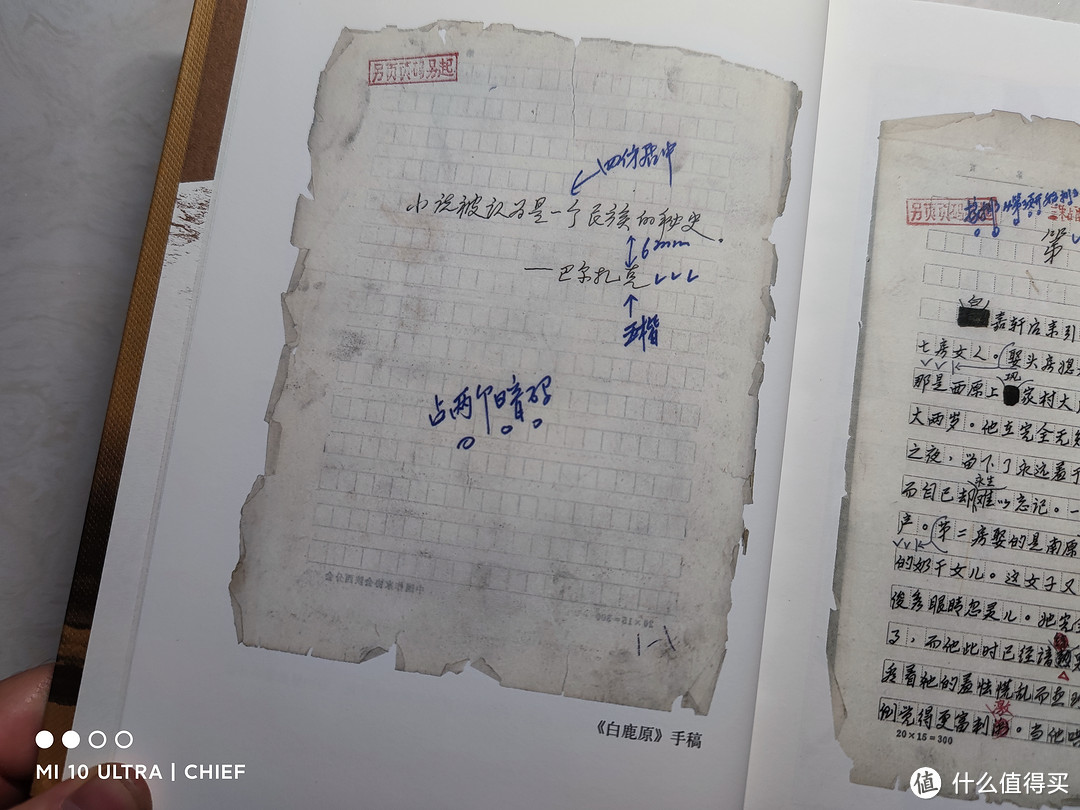 另页页码另起
四仿居中
小说被认为是一个民族的秘史。
6mm
——巴尔扎克
五楷
占两个暗码
中国作家协会陕西分会
20×15=300
1-1
《白鹿原》手稿
另页页码另起
第
白
嘉轩后来引
七房女人。娶头房媳
那是西原上
家村大
大两岁。他在完全无知
之夜，留下了永远羞于
永生
而自己却难以忘记。一
产。第二房娶的是南原
的奶干女儿。这女子又
俊秀眼睛忽灵儿。她完全
了，而他此时已经谙
看着她的羞怯慌乱而
倒觉得更富刺
激
。当他哄
20×15=300
MI 10 ULTRA | CHIEF
值 什么值得买